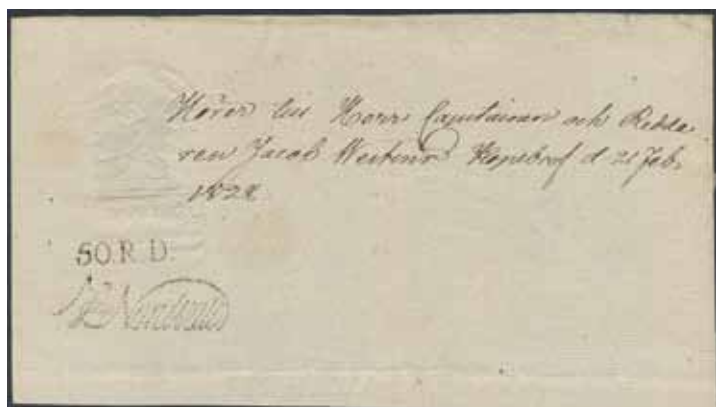 Hörer till Herr Capitainen och Redda-
ren Jacob Köpebref d 21 Feb.
1828
50.R.D.